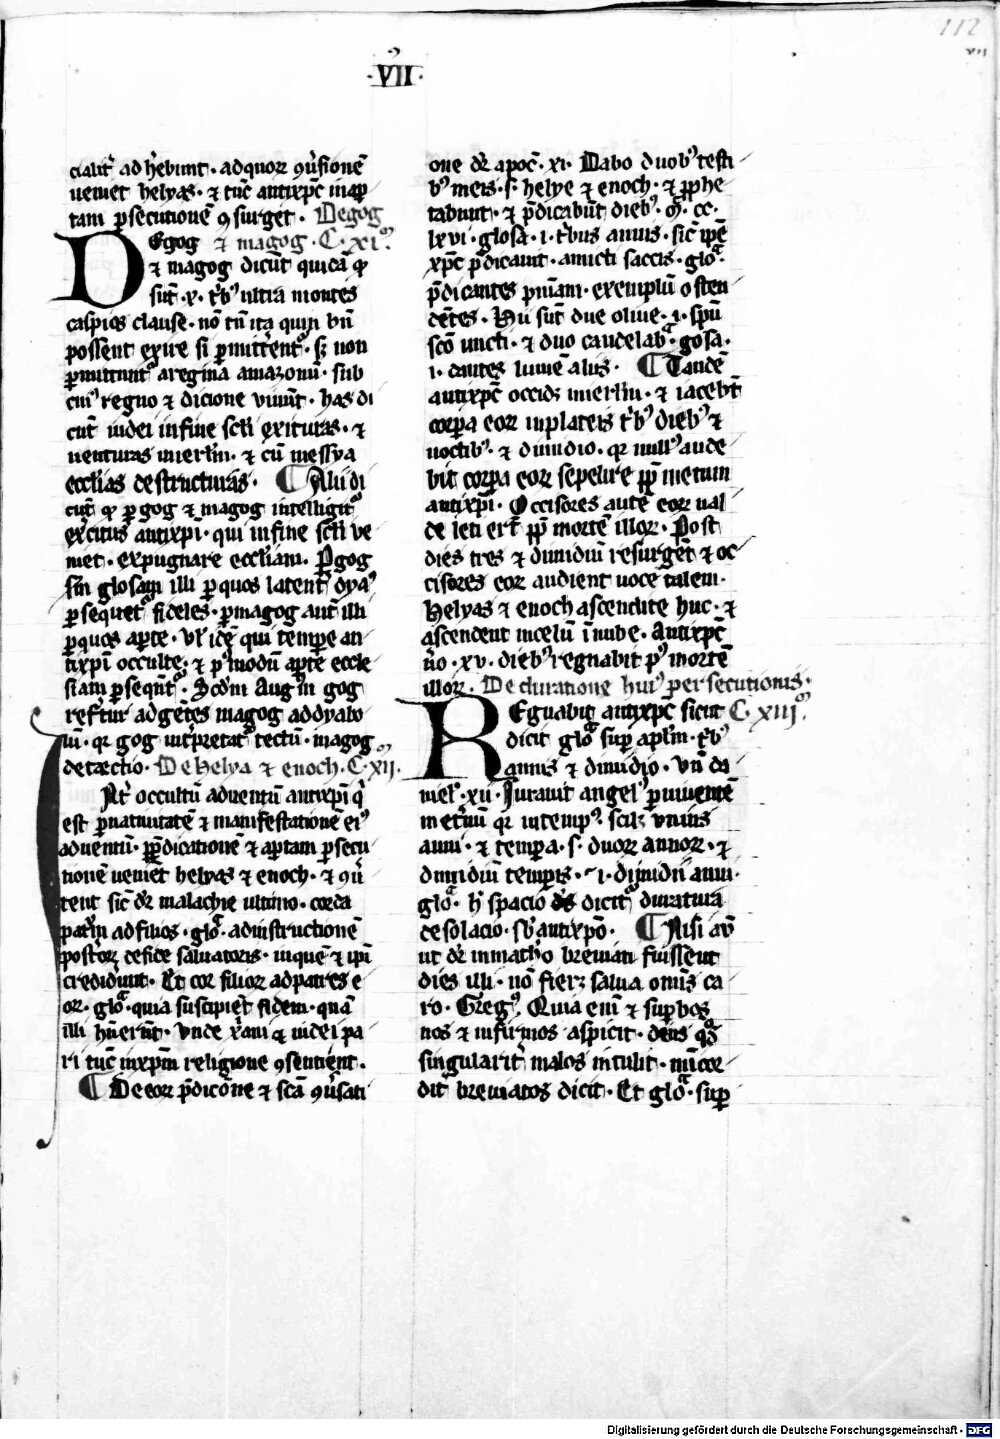 112
VII
·VII·
cialit̓ ad h̓ebunt · ad quoꝝ ꝯu̓sionē
ueniet helyas · ⁊ tūc antixp̄c in aꝑ
tam ꝑsecutionē ꝯsurget · De gog
Egog ⁊ magog · C · xiᵐ
⁊ magog dicūt quidā ꝙ
sūt · x · tⁱbꝰ ultra montes
caspios clause · nō tn̄ ita quin bn̄
possent exire si ꝑmitt̓entᷣ · sꝫ non
ꝑmittuntᷣ a regina amazonū · sub
cuiꝰ regno ⁊ dicione viuūt · has di
cūt iudei in fine scl̓i exituras · ⁊
uenturas in ierl̄m · ⁊ cū messya
eccl̓ias destructuras · ¶ Alii di
cūt ꝙ ꝑ gog ⁊ magog intelligitᷣ
exc̓itus antixp̄i · qui in fine scl̓i ve
niet · expugnare eccl̓iam · P gog
scd̄m glosam illi ꝑ quos latent̓ dyaꝰ
ꝑsequetᷣ fideles · ꝑ magog aut̄ illi
ꝑ quos aꝑte · Vl̓ idē qui tempe an
tixp̄i occulte · ⁊ pꝰmodū aꝑte eccle
siam ꝑseqūtᷣ · Scd̄m Augꝰm gog
ref̓tur ad gētes magog ad dyabo
lū · qꝛ gog int̓pretatᷣ tectū · magog
detectio · De helya ⁊ enoch · C · xii ·
Nt̓ occultū aduentū antixp̄i qⁱ
est ꝑ natiuitatē ⁊ manifestationē eiꝰ
aduentū · ꝑ p̄dicationē ⁊ aꝑtam ꝑsecu
tionē ueniēt helyas ⁊ enoch · ⁊ ꝯu̓
tent sic̄ dr̄ malachie ultimo · corda
patrū ad filios · gloᵃ · ad instructionē
posteroꝝ de fide saluatoris · in quē ⁊ ipi̓
credid̓unt · Et cor filioꝝ ad patres e
oꝝ · gloᵃ · quia suscipiēt fidem · quā
illi hūerūt · Vnde xr̄ani ⁊ iudei pa
ri tūc in xp̄m religione ꝯsentient ·
¶ De eoꝝ p̄dicōne ⁊ scā ꝯu̓sati
one dr̄ apoc̄ · xi · Dabo duobꝰ testi
bꝰ meis · s · helye ⁊ enoch · ⁊ ꝓphe
tabunt · ⁊ p̄dicabūt diebꝰ · ṁ · cc ·
lxvi · glosa · i · tⁱbus annis · sic̄ ipē
xp̄c p̄dicauit · amicti saccis · gloᵃ ·
p̄dicantes pniam · exemplū osten
dētes · Hii sūt due oliue · i · spū
scō uncti · ⁊ duo candelabᵃ · gosa ·
i · dantes lumē aliis · ¶ Tandē
antixp̄c occidꝫ in ierl̄m · ⁊ iacebūt
corpa eoꝝ in plateis tⁱbꝰ diebꝰ ⁊
noctibꝰ · ⁊ dimidio · qꝛ nullꝰ aude
bit corpa eoꝝ sepelire ꝓp̄ metum
antixp̄i · Occisores autē eoꝝ ual
de leti erūt ꝓp̄ mortē illoꝝ · Post
dies tres ⁊ dimidiū resurgēt ⁊ oc
cisores eoꝝ audient uocē talem ·
Helyas ⁊ enoch ascendite huc · ⁊
ascendent in celū ī nube · Antixp̄c
ūo · xv · diebꝰ regnabit pꝰ mortē
illoꝝ · De duratione huiꝰ persecutionis ·
Egnabit antixp̄c sicut C · xiiiᵐ
dicit gloᵃ suꝑ apl̄m · tⁱbꝰ
annis ⁊ dimidio · Vn̄ da
niel̓ · xii · Iurauit angelꝰ ꝑ uiuentē
in et̓nū qꝛ in tempꝰ · scilꝫ unius
anni · ⁊ tempa · s · duoꝝ annoꝝ · ⁊
dimidiū tempis · i · dimidii anni ·
gloᵃ · h̓ spacio dicitᷣ duratura
desolacio · sb̓ antixpō · ¶ Nisi aū
ut dr̄ in matħo breuiati fuissent
dies illi · nō fieꝫ salua omīs ca
ro · Gregꝰ · Quia eni̓ ⁊ suꝑbos
nos ⁊ infirmos aspicit · deus qᵒs
singularit̓ malos intulit · mīcor
dit̓ breuiatos dicit · Et gloᵃ · suꝑ
Digitalisierung gefördert durch die Deutsche Forschungsgemeinschaft - DFG